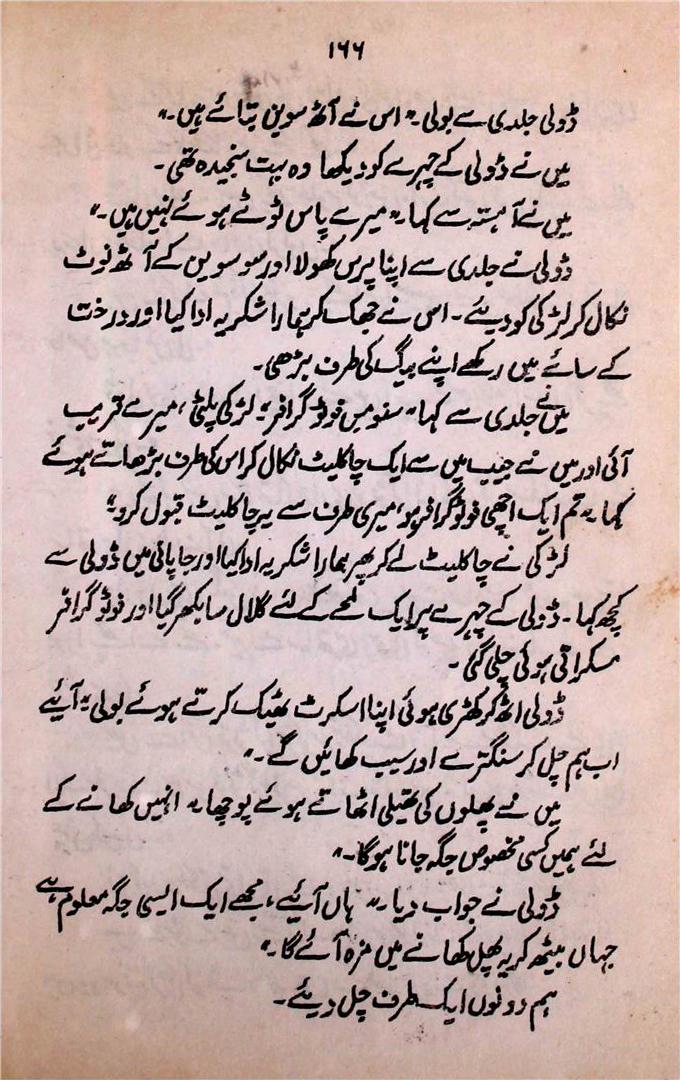 ۱۶۶
ڈولی جلدی سے بولی۔ "اس نے آٹھ سوین بتائے ہیں۔"
میں نے ڈولی کے چہرے کو دیکھا وہ بہت سنجیدہ تھی۔
میں نے آہستہ سے کہا۔ "میرے پاس ٹوٹے ہوئے نہیں ہیں۔"
ڈولی نے جلدی سے اپنا پرس کھولا اور سو سوین کے آٹھ نوٹ
نکال کر لڑکی کو دیئے۔ اس نے جھک کر ہمارا شکریہ ادا کیا اور درخت
کے سائے میں رکھے اپنے بیگ کی طرف بڑھی۔
میں نے جلدی سے کہا "سنو مس فوٹو گرافر" لڑکی پلٹی، میرے قریب
آئی اور میں نے جیب میں سے ایک چاکلیٹ نکال کر اس کی طرف بڑھاتے ہوئے
کہا۔ "تم ایک اچھی فوٹو گرافر ہو، میری طرف سے یہ چاکلیٹ قبول کرو"
لڑکی نے چاکلیٹ لے کر پھر ہمارا شکریہ ادا کیا اور جاپانی میں ڈولی سے
کچھ کہا۔ ڈولی کے چہرے پر ایک لمحے کے لئے گلال سا بکھر گیا اور فوٹو گرافر
مسکراتی ہوئی چلی گئی۔
ڈولی اٹھ کر کھڑی ہوئی اپنا اسکرٹ ٹھیک کرتے ہوئے بولی "آیئے
اب ہم چل کر سنگترے اور سیب کھائیں گے۔"
میں نے پھلوں کی تھیلی اٹھاتے ہوئے پوچھا۔ "انہیں کھانے کے
لئے ہمیں کسی مخصوص جگہ جانا ہوگا۔"
ڈولی نے جواب دیا۔ "ہاں آیئے، مجھے ایک ایسی جگہ معلوم ہے
جہاں بیٹھ کر یہ پھل کھانے میں مزہ آئے گا۔"
ہم دونوں ایک طرف چل دیئے۔